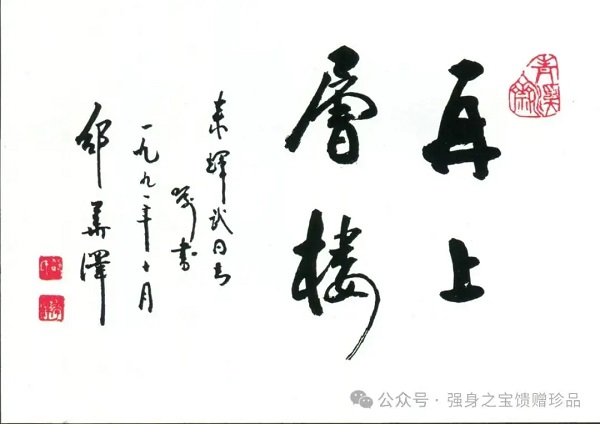 再上
層樓
来輝武同志
嘱書
一九九一年十月
邵華澤
青溪
公众号 · 强身之宝馈赠珍品